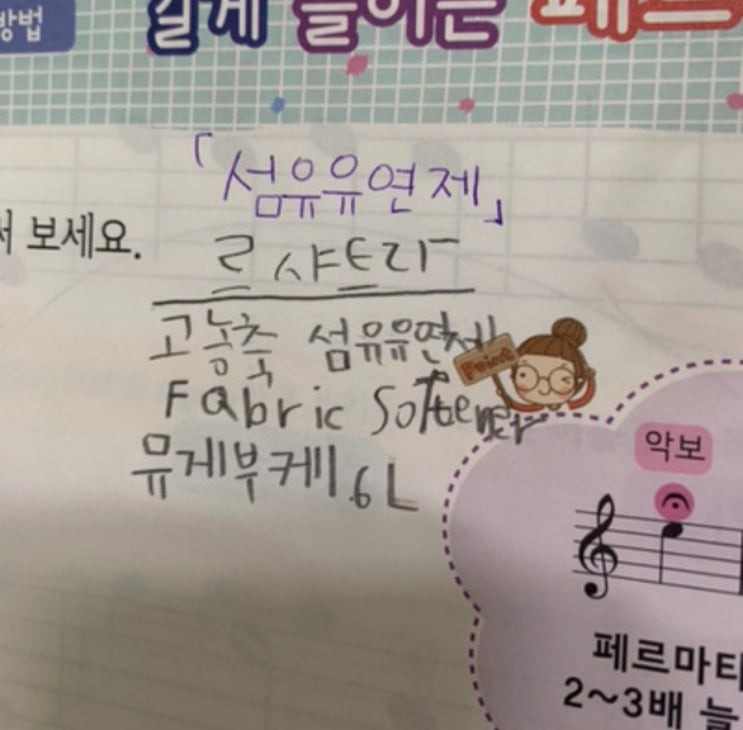 방법
길게 늘이는 페르
「섬유유연제」
써 보세요.
르샤트라
고농축 섬유유연제
Point
Fabric Softener
뮤게부케 6L
악보
페르마타
2~3배 늘